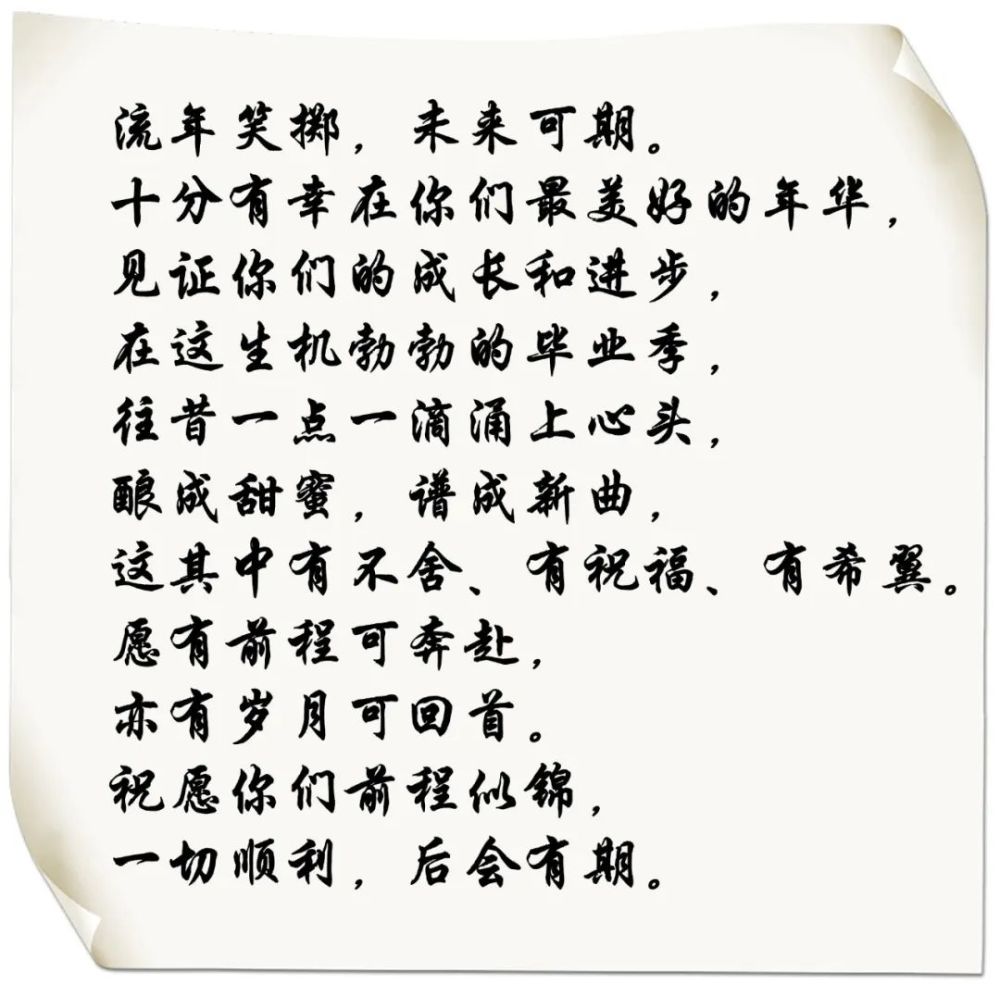 流年笑掷，未来可期。
十分有幸在你们最美好的年华，
见证你们的成长和进步，
在这生机勃勃的毕业季，
往昔一点一滴涌上心头，
酿成甜蜜，谱成新曲，
这其中有不舍、有祝福、有希翼。
愿有前程可奔赴，
亦有岁月可回首。
祝愿你们前程似锦，
一切顺利，后会有期。